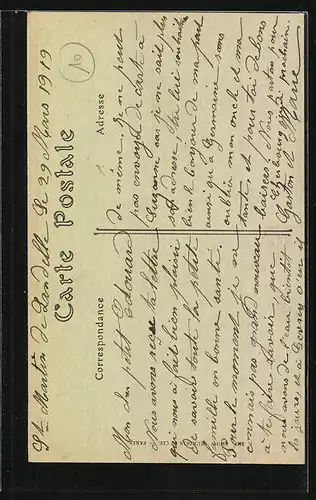 St Martin de Landelle le 29 Mars 1919
10
Carte Postale
Correspondance
Adresse
Mon cher petit Edouard
Nous avons reçu ta lettre
qui nous a fait bien plaisir
de savoir toute la petite
famille en bonne santé.
Pour le moment je ne
connais pas grand nouveau
à te faire savoir que
nous avons de l'eau bientôt
les jours, et à
de même. Je ne peut
pas envoyé de carte à
Suzanne car je ne sait plus
son adresse. Tu lui souhaitera
bien le bonjour de ma part
ainsi qu'à Germaine sans
oublier mon oncle et ma
tante et pour toi de bons
baisers. Nous partons pour
Cherbourg prochain.
Gaston